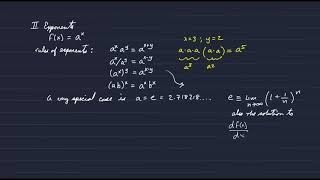 II Exponents
f(x) = a^x
rules of exponents: a^x a^y = a^{x+y}
a^x/a^y = a^{x-y}
(a^x)^y = a^{x·y}
(ab)^x = a^x b^x
x=3; y=2
a·a·a (a·a) = a^5
a^3 a^2
A very special case is a = e = 2.718218....
e ≡ lim n→∞ (1 + 1/n)^n
also the solution to
df(x)/dx